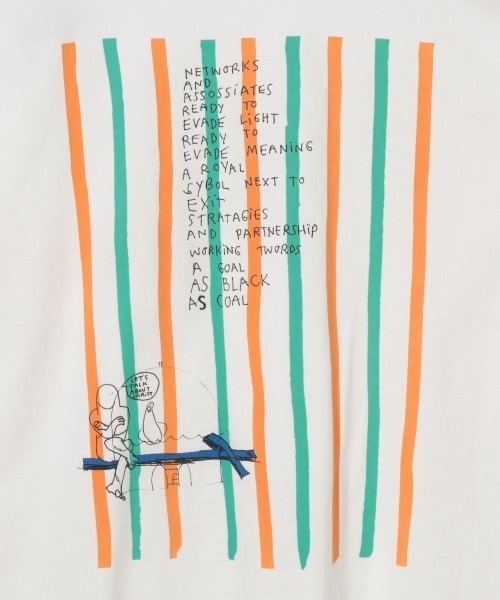 NETWORKS
AND
ASSOSSiATES
READY TO
EVADE LiGHT
READY TO
EVADE MEANiNG
A ROYAL
SYBOL NEXT TO
EXiT
STRATAGiES
AND PARTNERSHiP
WORKiNG TWORDS
A GOAL
AS BLACK
AS COAL
LET'S
TALK
ABOUT
CHRiST